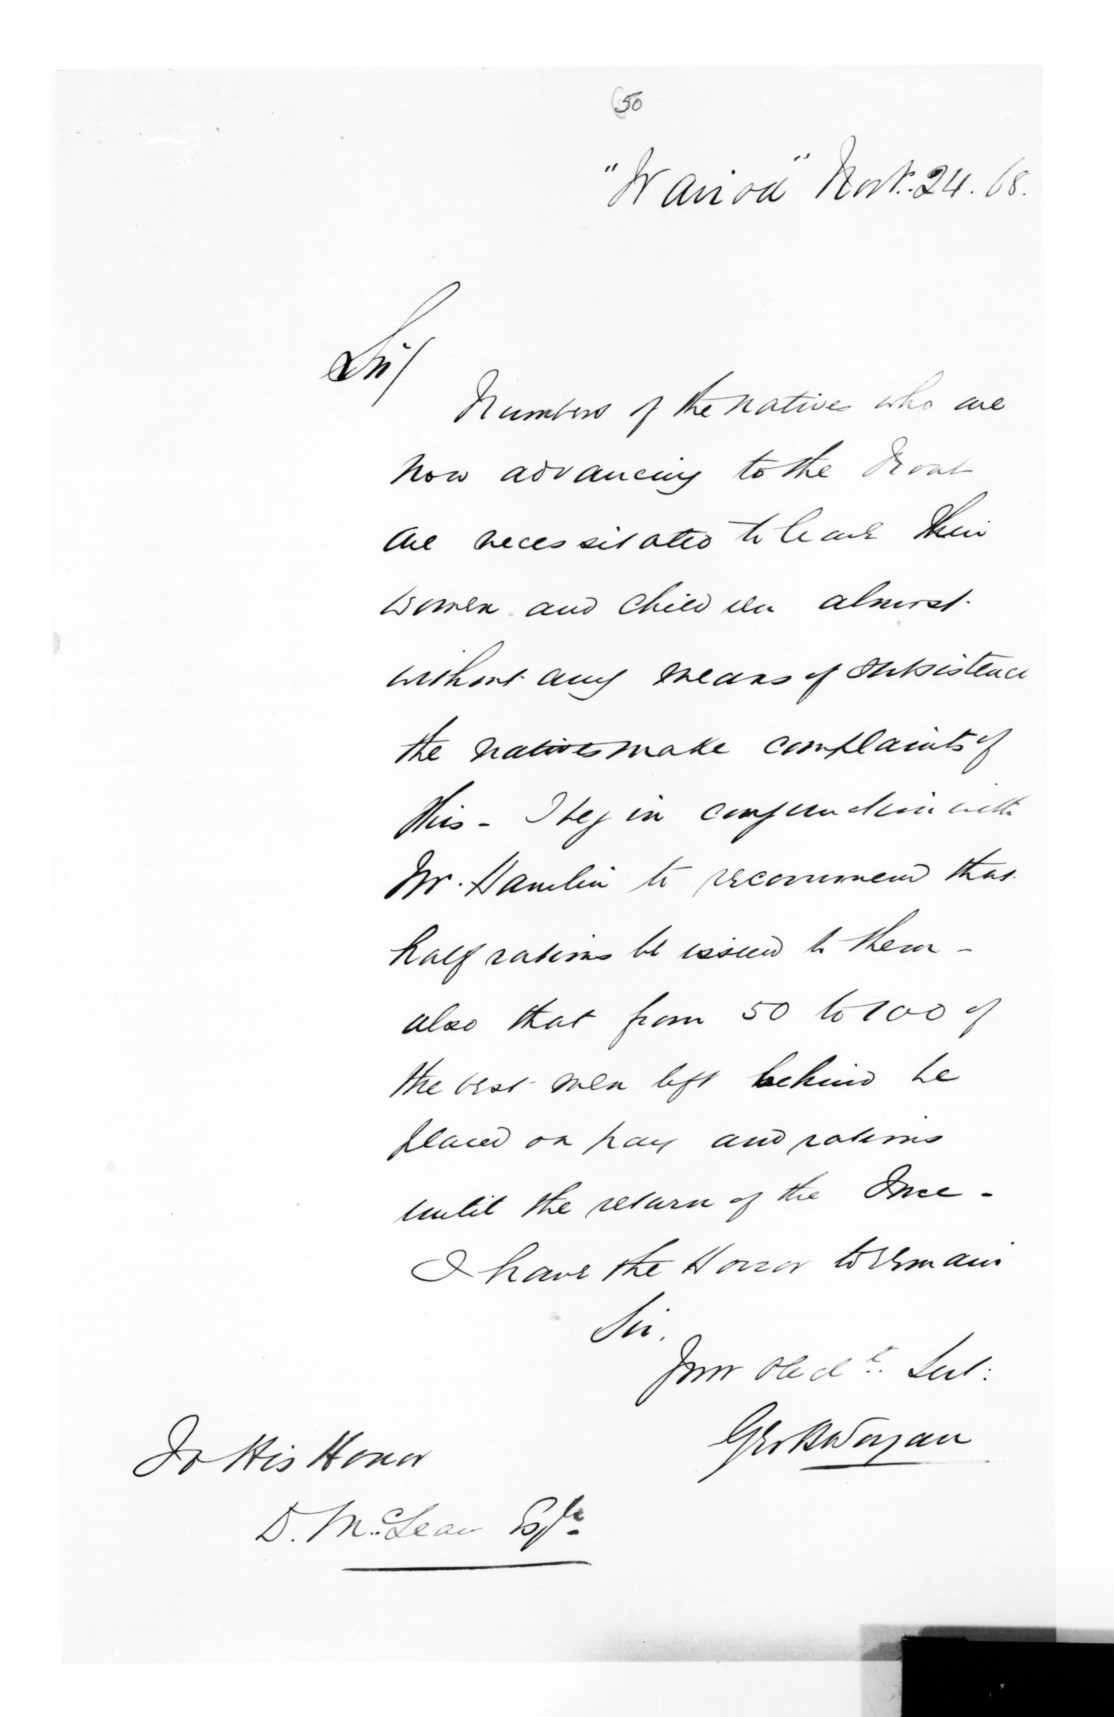 50
"Wairoa" Novr. 24. 68.
Sir/
Numbers of the natives who are
now advancing to the Front
are necessitated to leave their
women and children almost
without any means of subsistence
the natives make complaints of
this - I beg in conjunction with
Mr. Hamlin to recommend that
half rations be issued to them -
also that from 50 to 100 of
the best men left behind be
placed on pay and rations
until the return of the Force -
I have the Honor to remain
Sir.
Your Obedt. Sert:
Geo B Worgan
To His Honor
D. McLean Esqre.